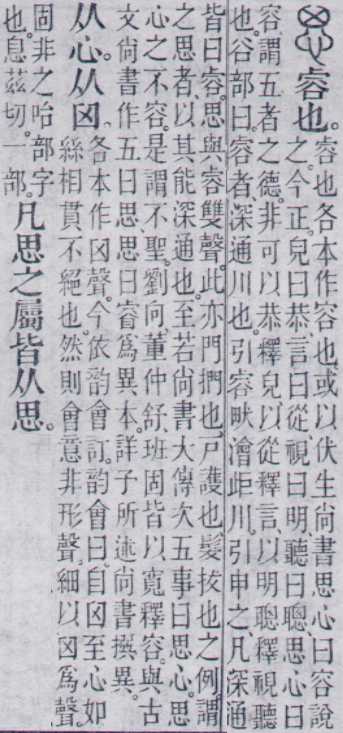 㕡也。㕡也各本作容也、或以伏生尚書思心曰容說
之。今正。皃曰恭、言曰從、視曰明、聽曰聰、思心曰
容、謂五者之德。非可以恭釋皃、以從釋言、以明聰釋視聽
也。谷部曰。㕡者、深通川也。引㕡畎澮歫川。引申之、凡深通
皆曰㕡。思與㕡雙聲。此亦門捫也、戶護也、髮拔也之例。謂
之思者、以其能深通也。至若尚書大傳次五事曰思心。思
心之不容。是謂不聖。劉向、董仲舒、班固皆以寬釋容。與古
文尚書作五曰思、思曰睿爲異本。詳予所述尚書撰異。
从心。从囟。各本作囟聲。今依韵會訂。韵會曰。自囟至心如
絲相貫不絕也。然則會意非形聲。細以囟爲聲。
固非之咍部字
也。息茲切。一部。凡思之屬皆从思。